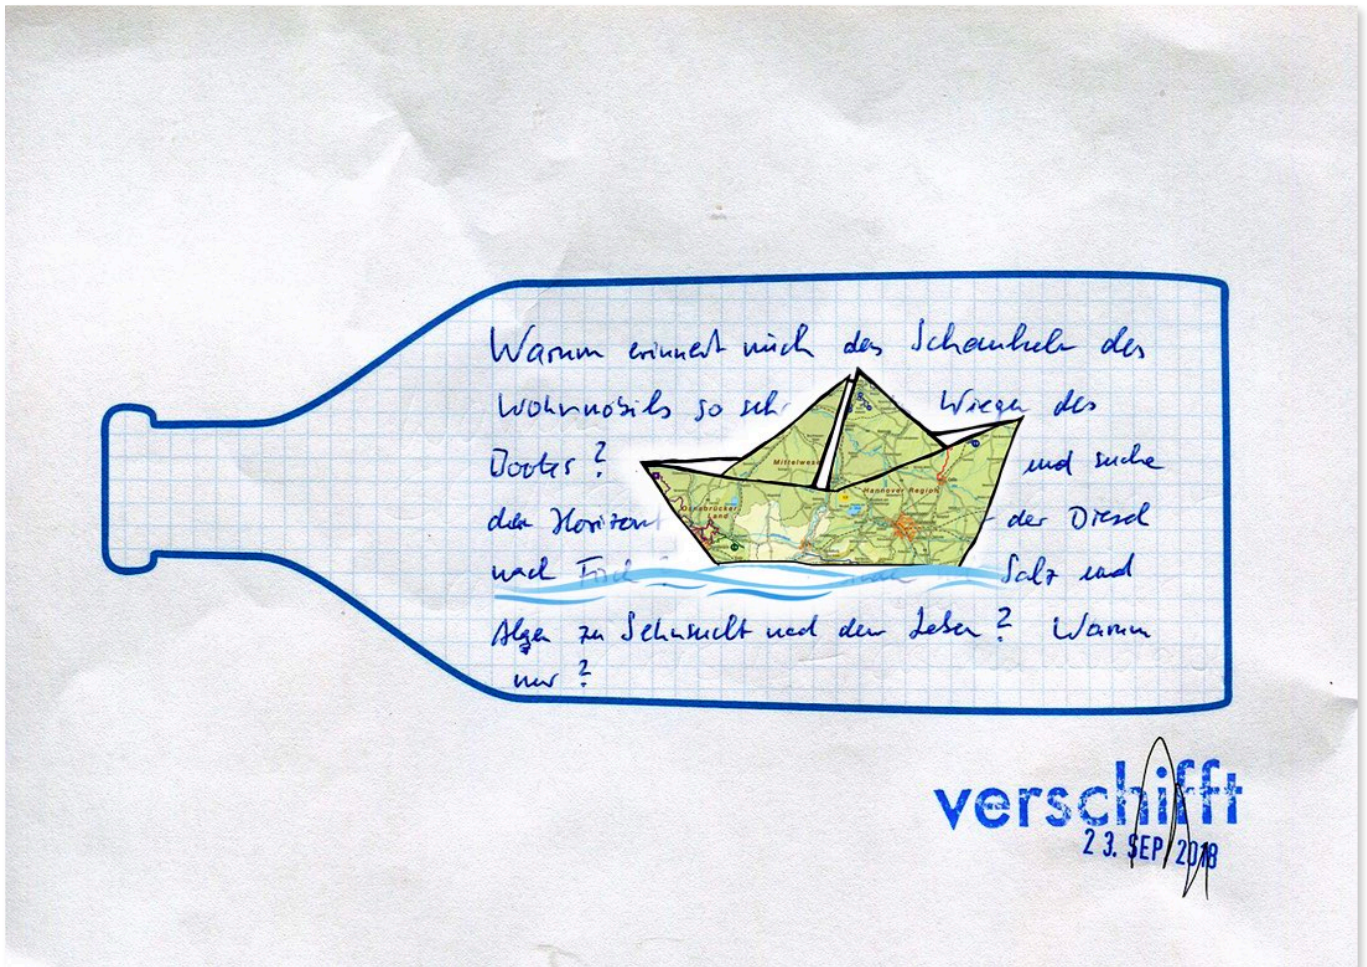 Warum erinnert mich das Schaukeln des
Wohnmobils so sehr Wiegen des
Bootes? und suche
den Horizont der Diesel
nach Fisch? Salz und
Algen zu Sehnsucht und dem Leben? Warum
nur?
Mittelweser
Hannover Region
Osnabrücker
Land
verschifft
23. SEP 2018